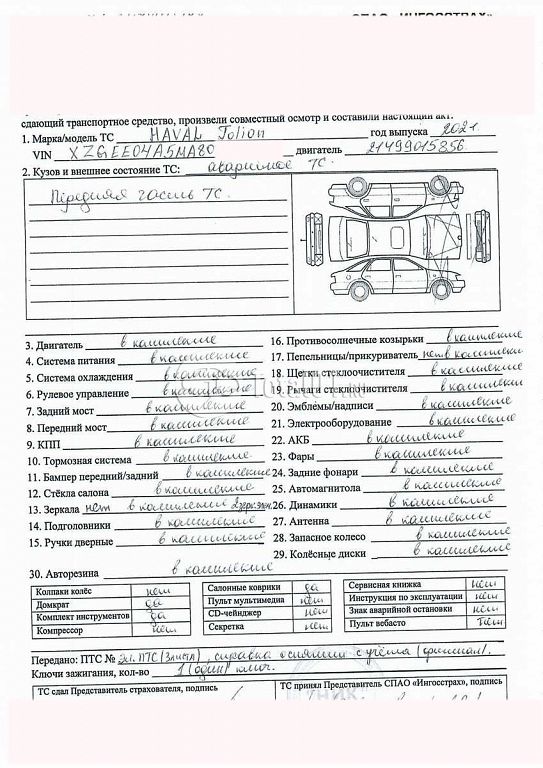 СПАО «ИНГОССТРАХ»
сдающий транспортное средство, произвели совместный осмотр и составили настоящий акт.
1. Марка/модель ТС HAVAL Jolion год выпуска 2021
VIN XZGEE04A5MA80 двигатель 21499015856
2. Кузов и внешнее состояние ТС: аварийное ТС.
Передняя часть ТС.
3. Двигатель в комплекте
4. Система питания в комплекте
5. Система охлаждения в комплекте
6. Рулевое управление в комплекте
7. Задний мост в комплекте
8. Передний мост в комплекте
9. КПП в комплекте
10. Тормозная система в комплекте
11. Бампер передний/задний в комплекте
12. Стёкла салона в комплекте
13. Зеркала нет в комплекте
14. Подголовники в комплекте
15. Ручки дверные в комплекте
16. Противосолнечные козырьки в комплекте
17. Пепельницы/прикуриватель нет в комплекте
18. Щетки стеклоочистителя в комплекте
19. Рычаги стеклоочистителя в комплекте
20. Эмблемы/надписи в комплекте
21. Электрооборудование в комплекте
22. АКБ в комплекте
23. Фары в комплекте
24. Задние фонари в комплекте
25. Автомагнитола в комплекте
26. Динамики в комплекте
27. Антенна в комплекте
28. Запасное колесо в комплекте
29. Колёсные диски в комплекте
30. Авторезина в комплекте
Колпаки колёс нет
Домкрат да
Комплект инструментов да
Компрессор нет
Салонные коврики да
Пульт мультимедиа нет
CD-чейнджер нет
Секретка нет
Сервисная книжка нет
Инструкция по эксплуатации нет
Знак аварийной остановки нет
Пульт вебасто нет
Передано: ПТС № эл. ПТС (2 листа), справка о снятии с учёта (оригинал).
Ключи зажигания, кол-во 1 (один) ключ.
ТС сдал Представитель страхователя, подпись
ТС принял Представитель СПАО «Ингосстрах», подпись